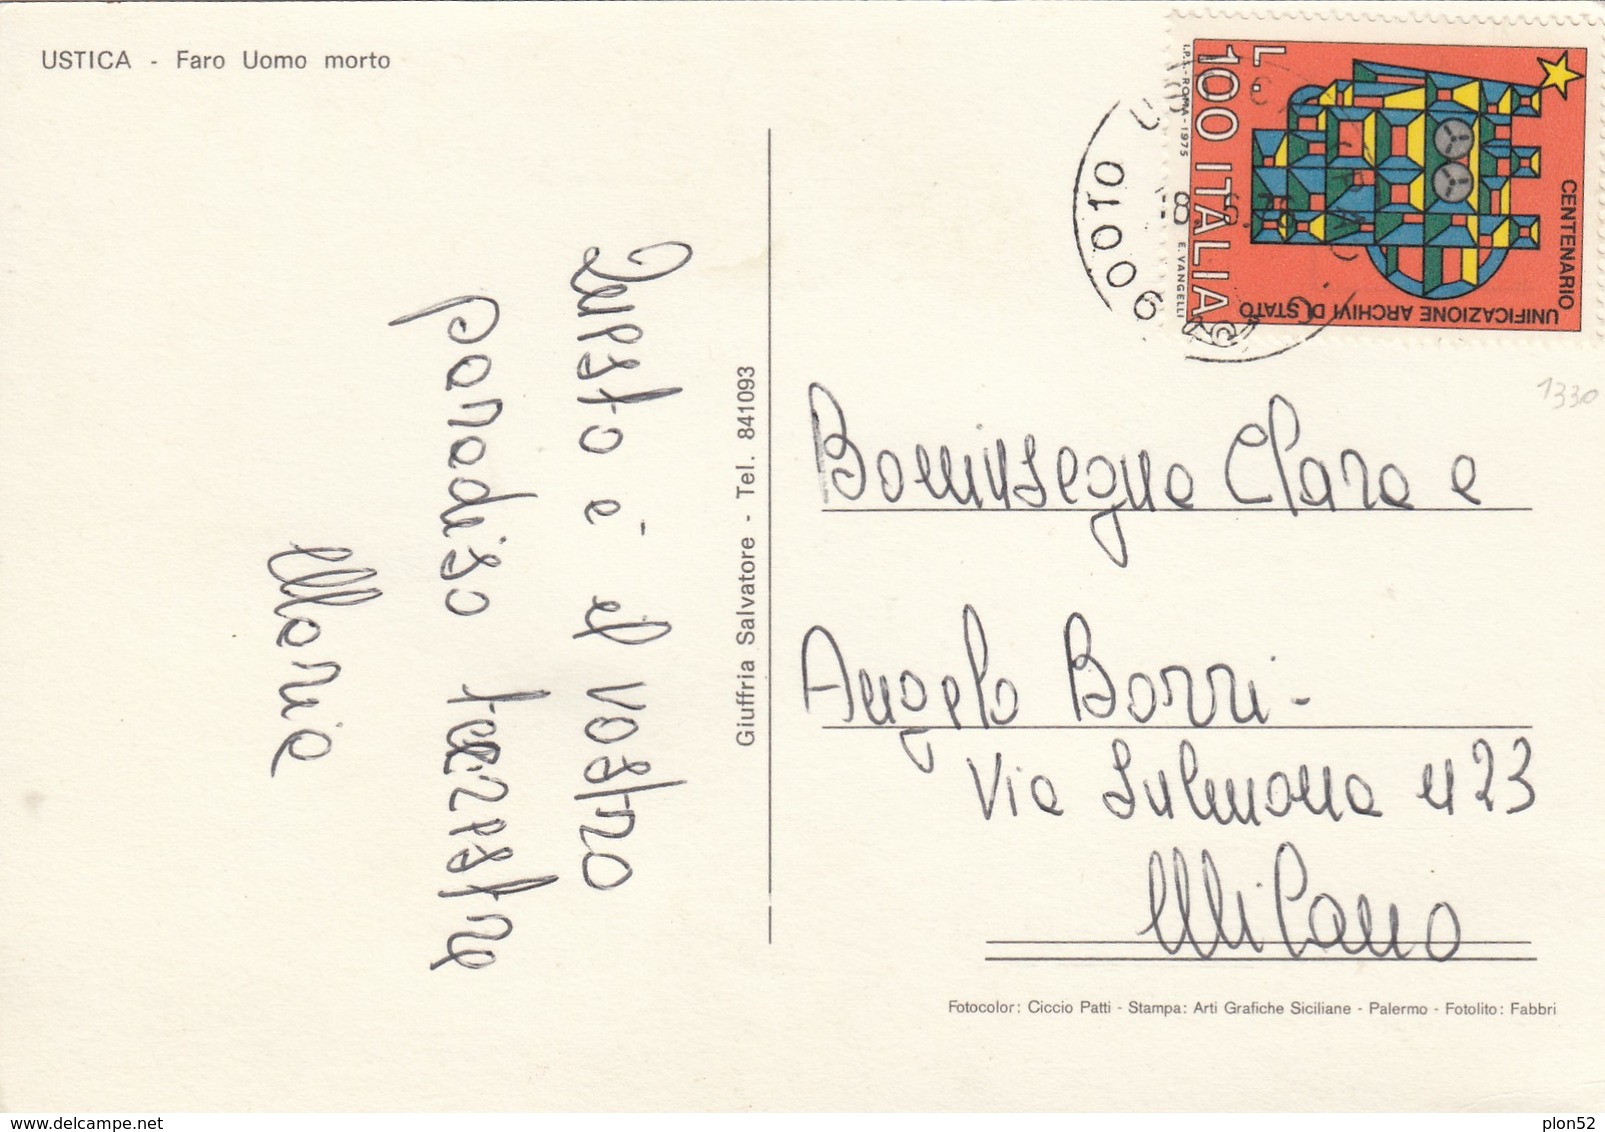 USTICA - Faro Uomo morto
Questo è il vostro
paradiso terrestre
Maria
Giuffria Salvatore - Tel. 841093
L. 100 ITALIA
I.P.S.-ROMA-1975
E. VANGELLI
CENTENARIO
UNIFICAZIONE ARCHIVI DI STATO
90010
1330
Boninsegna Clara e
Angelo Borri -
Via Sulmona n 23
Milano
Fotocolor: Ciccio Patti - Stampa: Arti Grafiche Siciliane - Palermo - Fotolito: Fabbri
delcampe.net
plon52